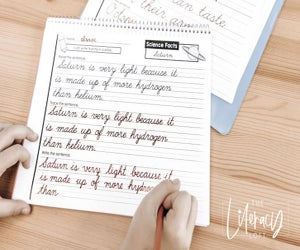 than taste
their
Name
Science Facts
Saturn
Saturn is very light because it
is made up of more hydrogen
than helium.
Trace the sentence.
Saturn is very light because it
is made up of more hydrogen
than helium.
Write the sentence.
Saturn is very light because it
is made up of more hydrogen
than
THE
Literacy